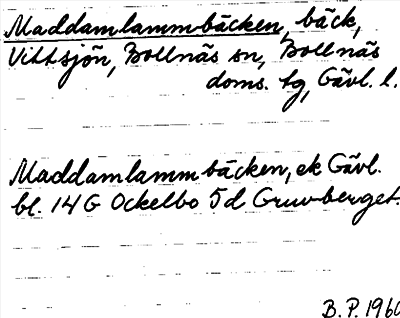 Maddamlammbäcken, bäck,
Vittsjön, Bollnäs sn, Bollnäs
doms. tg, Gävl. l.
Maddamlammbäcken, ek Gävl.
bl. 14G Ockelbo 5d Gruvberget.
B.P. 1960